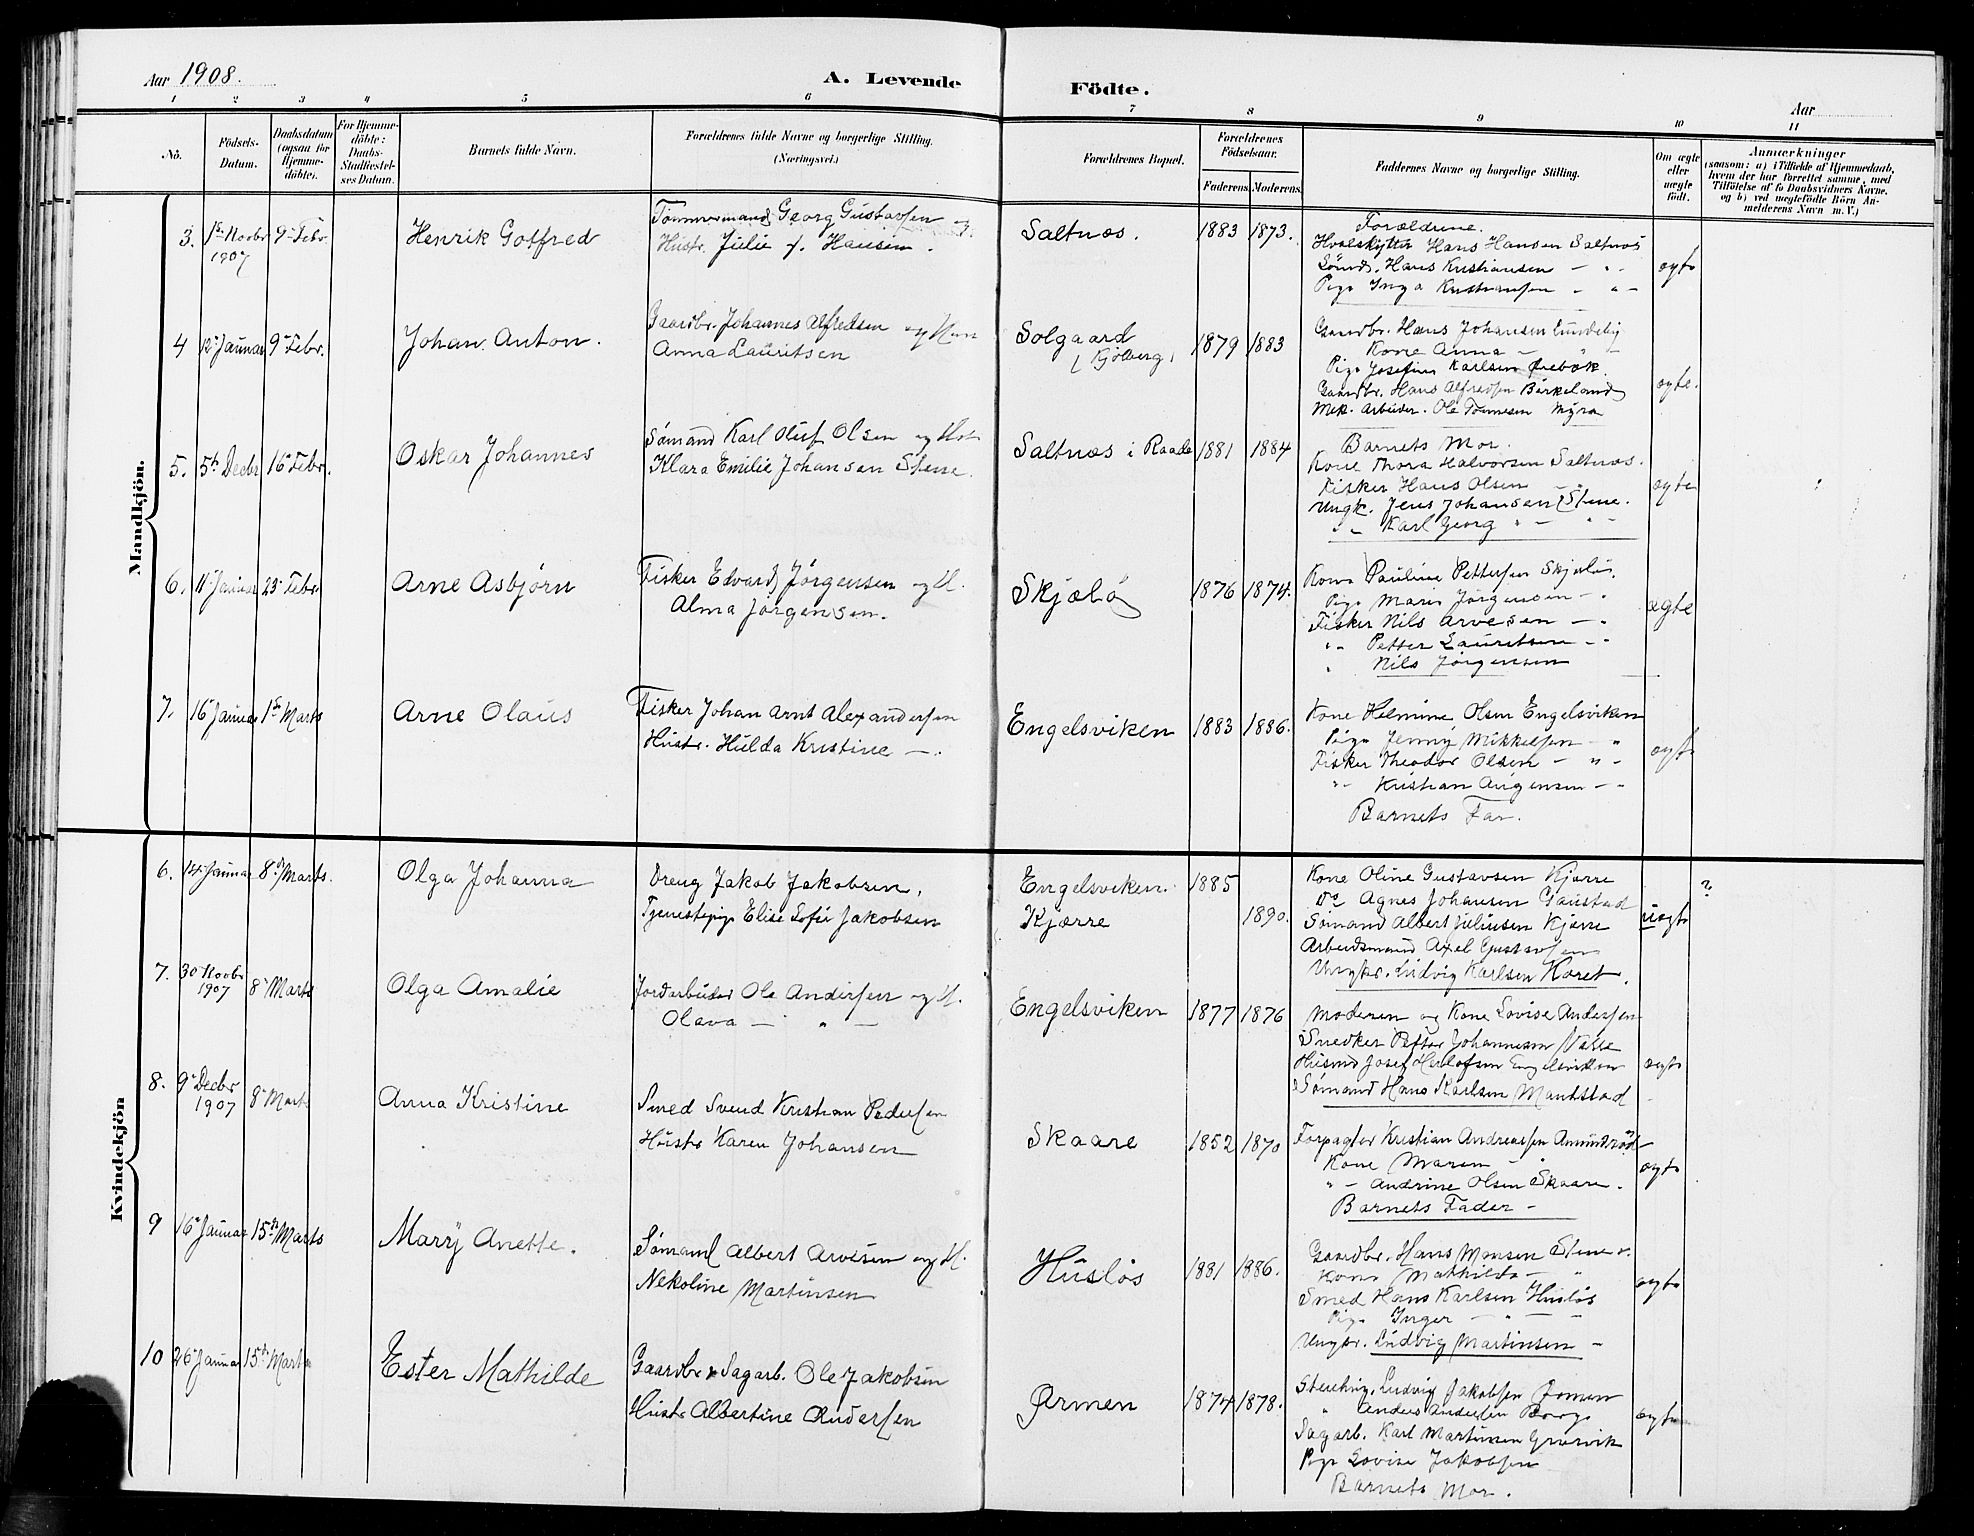 Aar 1908.
A. Levende Födte.
Aar
1 2 3 4 5 6 7 8 9 10 11
No.
Födsels-Datum.
Daabsdatum (ogsaa for Hjemme-döbte).
For Hjemme-döbte: Daabs-Stadfæstel-ses Datum.
Barnets fulde Navn.
Forældrenes fulde Navne og borgerlige Stilling. (Næringsvei.)
Forældrenes Bopæl.
Forældrenes Födselsaar.
Faderens. Moderens.
Faddernes Navne og borgerlige Stilling.
Om ægte eller uægte födt.
Anmærkninger
(saasom: a) i Tilfælde af Hjemmedaab,
hvem der har forrettet samme, med
Tilföielse af to Daabsvidners Navne,
og b) ved uægtefödte Börn An-
melderens Navn m. V.)
Mandkjön.
3. 1ste Novbr 1907 9de Febr. Henrik Gotfred
Tømmermand Georg Gustavsen og
Hustr. Julie f. Hansen.
Saltnæs. 1883 1873.
Forældrene.
Hvalskytter Hans Hansen Saltnæs
Hans Kristiansen - " -
Pige Inga Kristiansen - " -
ægte
4 12te Januar 9de Febr. Johan Anton.
Gaardbr. Johannes Alfredsen og Hus
Anna Lauritsen
Solgaard
(Kjølberg)
1879 1883
Gaardbr. Hans Johansen Lundeby
Kone Anna - " -
Pige Josefine Karlsen Ørebæk.
Gaardbr. Hans Alfredsen Birkeland
Mek. Arbeider. Ole Tønnesen Myra
ægte.
5. 5te Decbr 16de Febr. Oskar Johannes
Sømand Karl Oluf Olsen og Hst
Klara Emilie Johansen Stene.
Saltnæs i Raade 1881 1884
Barnets Mor.
Kone Thora Halvorsen Saltnæs.
Fisker Hans Olsen - " -
Ungk. Jens Johansen Stene.
" - Karl Georg " - " -
ægte
6. 11te Januar 23de Febr. Arne Asbjørn
Fisker Edvard Jørgensen og H.
Alma Jørgensen.
Skjælø 1876 1874.
Kone Pauline Pettersen Skjælø.
Pige Marie Jørgensen - "
Fisker Nils Arvesen - "
" - Petter Lauritsen - "
" Nils Jørgensen
ægte
7. 16de Januar 1ste Marts Arne Olaus
Fisker Johan Arnt Alexandersen
Hustr. Hulda Kristine - .
Engelsviken 1883 1886.
Kone Helmine Olsen Engelsviken
Pige Jenny Mikkelsen - "
Fisker Theodor Olsen - " -
" - Kristian Jørgensen - "
Barnets Far.
ægte
Kvindekjön
6. 14de Januar 8de Marts. Olga Johanna
Dreng Jakob Jakobsen,
Tjenestepige Elise Sofie Jakobsen
Engelsviken. 1885
Kjærre 1890.
Kone Oline Gustavsen Kjærre
Do Agnes Johansen Gaustad
Sømand Albert Juliusen Kjærre
Arbeidsmand Axel Gustavsen
Ungkr. Ludvig Karlsen Karet.
uægte
?
7. 30te Novbr 1907 8de Marts Olga Amalie
Jordarbeider Ole Andersen og H.
Olava - " -
Engelsviken 1877 1876
Moderen og Kone Lovise Andersen
Snedker Petter Johannesen Valle
Husmd Josef Herlofsen Engelsviken
Sømand Hans Karlsen Mantstad
ægte
8. 9de Decbr 1907 8de Marts Anna Kristine
Smed Svend Kristian Pedersen
Hustr Karen Johansen
Skaare 1852 1870
Forpagter Kristian Andreassen Amundrød
Kone Maren -
" - Andrine Olsen Skaare.
Barnets Fader -
ægte
9 16de Januar 15de Marts Mary Anette.
Sømand Albert Arvesen og H.
Nekoline Martinsen
Husløs 1881 1886.
Gaardbr. Hans Monsen Stene
Kone Mathilde - "
Smed Hans Karlsen Husløs
Pige Inger - " -
Ungkr. Ludvig Martinsen -
ægte
10 26de Januar 15de Marts Ester Mathilde
Gaardbr & Sagarb. Ole Jakobsen
Hustr Albertine Andersen
Ørmen 1874 1878.
Ludvig Jakobsen Ørmen
" Anders Andersen Borge
Sagarb. Karl Martinsen
Pige Lovise Jakobsen
Barnets Mor.
ægte